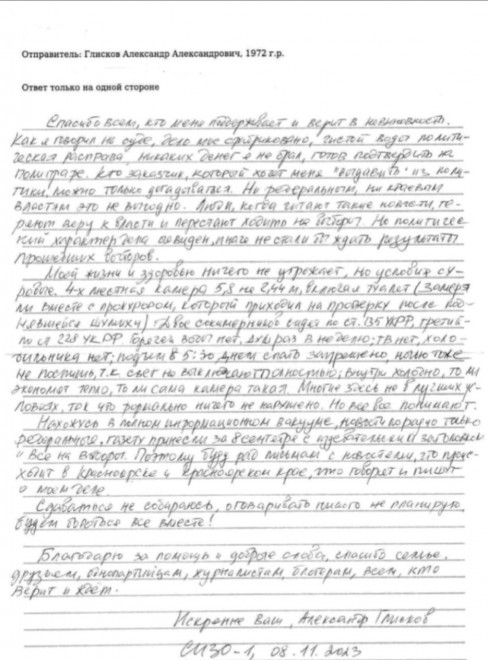 Отправитель: Глисков Александр Александрович, 1972 г.р.
Ответ только на одной стороне
Спасибо всем, кто меня поддерживает и верит в невиновность.
Как я говорил на суде, дело мое сфабриковано, чистой воды полити-
ческая расправа, никаких денег я не брал, готов подтвердить на
полиграфе. Кто заказчик, который хочет меня "выдавить" из поли-
тики, можно только догадываться. Ни федеральным, ни краевым
властям это не выгодно. Люди, когда читают такие новости, те-
ряют веру к власти и перестают ходить на выборы. Но политичес-
кий характер дела очевиден, иначе не стали бы ждать результаты
прошедших выборов.
Моей жизни и здоровью ничего не угрожает, но условия су-
ровые. 4-х местная камера 5,8 на 2,44 м, включая туалет (замеря-
ли вместе с прокурором, который приходил на проверку после под-
нявшейся шумихи) Двое сокамерников сидят по ст. 135 УК РФ, третий-
по ст 228 УК РФ Горячей воды нет, душ раз в неделю, ТВ нет, холо-
дильника нет, подъем в 5:30 днем спать запрещено, ночью тоже
не поспишь, т.к. свет не выключают полностью, внутри холодно, то ли
экономят тепло, то ли сама камера такая. Многие здесь не в лучших ус-
ловиях, так что формально ничего не нарушено. Но все все понимают.
Нахожусь в полном информационном вакууме, новости по радио только
федеральные, газету принесли за 8 сентября с
"Все на выборы". Поэтому буду рад письмам с новостями, что проис-
ходит в Красноярске и Красноярском крае, что говорят и пишут
о моем деле
Сдаваться не собираюсь, оговаривать никого не планирую,
будем бороться все вместе!
Благодарю за помощь и добрые слова, спасибо семье,
друзьям, однопартийцам, журналистам, блогерам, всем, кто
верит и ждет.
Искренне Ваш, Александр Глисков
СИЗО-1, 08.11.2023